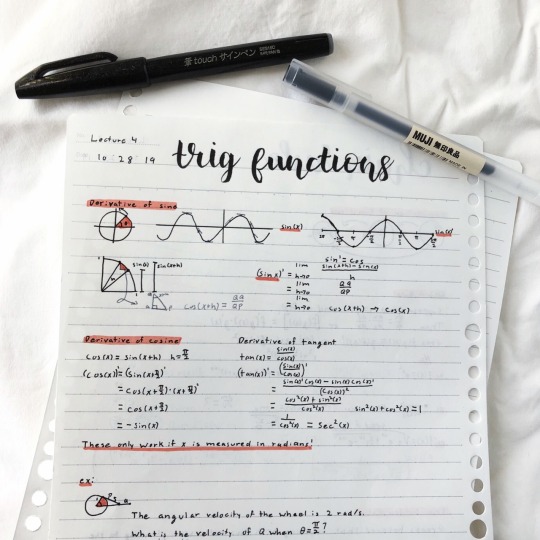 筆touch サインペン
MUJI 無印良品
Lecture 4
10 : 28 19
trig functions
Derivative of sine
sin(x)
sin(x) sin(x+h)
sin' = cos
(sin x)' = lim h→0 sin(x+h)-sin(x) / h
= lim h→0
= lim h→0 cos(x+h) → cos(x)
cos(x+h) =
Derivative of cosine
cos(x) = sin(x+h) h=π/2
(cos(x))' = (sin(x+π/2))'
= cos(x+π/2)·(x+π/2)'
= cos(x+π/2)
= -sin(x)
Derivative of tangent
tan(x) = sin(x)/cos(x)
(tan(x))' = (sin(x)/cos(x))'
= sin(x)'cos(x) - sin(x)cos(x)' / (cos(x))²
= cos²(x) + sin²(x) / cos²(x) sin²(x)+cos²(x) = 1
= 1/cos²(x) = sec²(x)
These only work if x is measured in radians!
ex:
The angular velocity of the wheel is 2 rad/s.
What is the velocity of Q when θ=π/2?